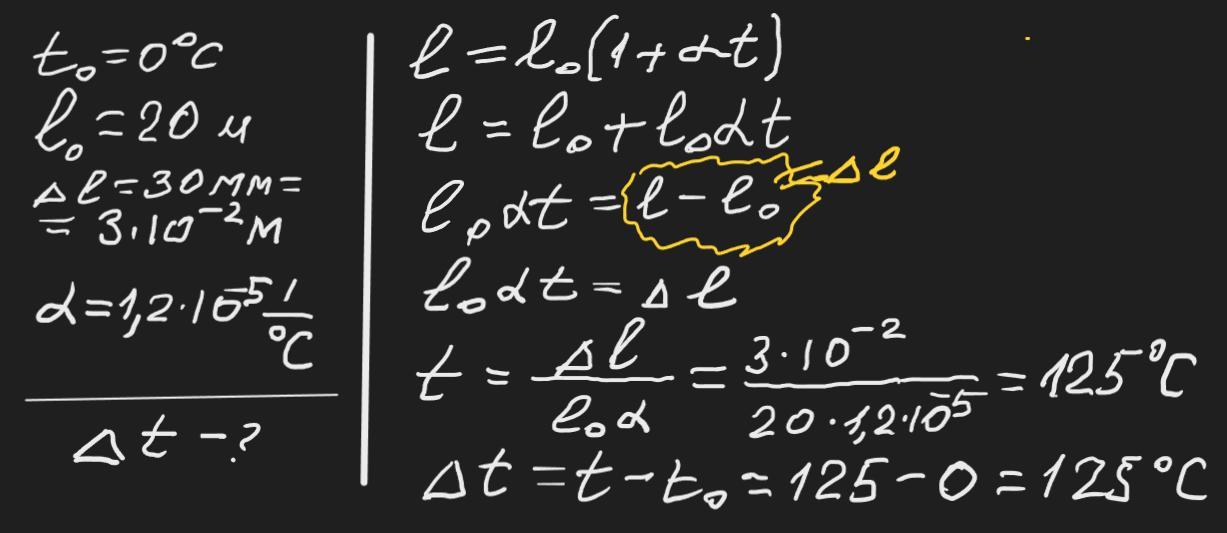 t₀=0°C
l₀=20 м
Δl=30мм=
=3·10⁻²м
α=1,2·10⁻⁵ 1/°C
Δt-?
l=l₀(1+αt)
l=l₀+l₀αt
l₀αt=l-l₀ Δl
l₀αt=Δl
t=Δl/l₀α=3·10⁻²/20·1,2·10⁻⁵=125°C
Δt=t-t₀=125-0=125°C